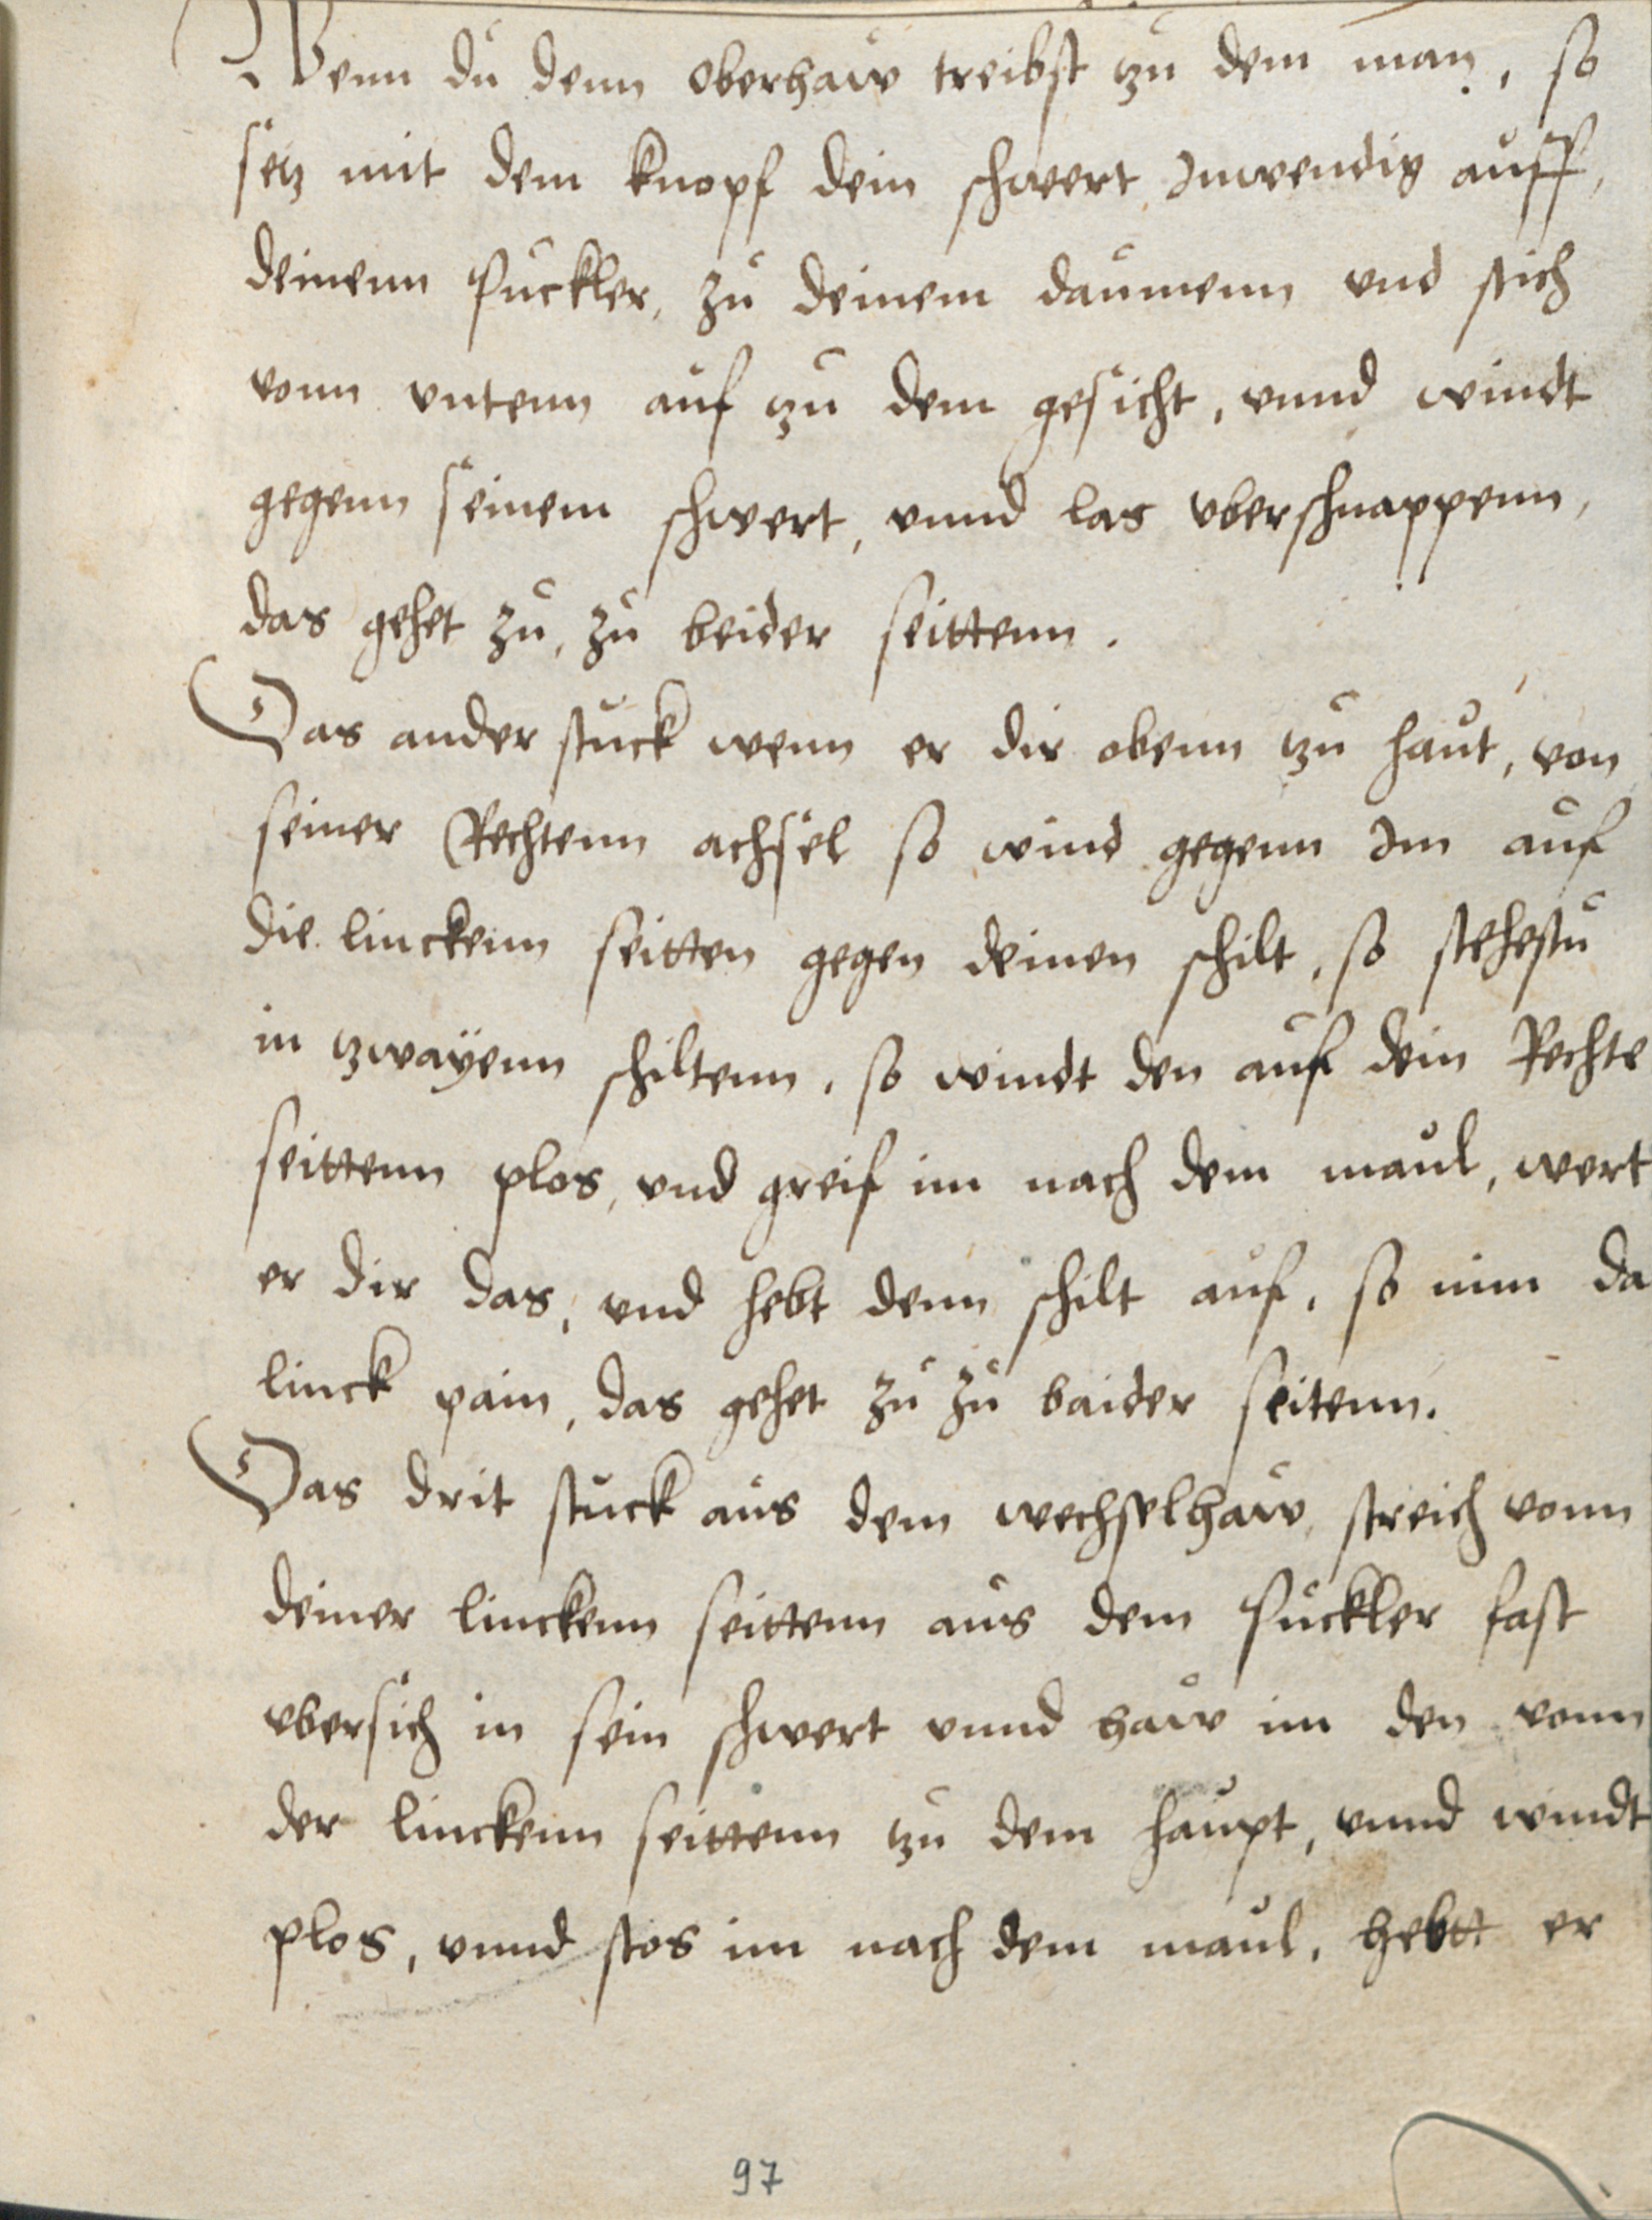 Wenn du denn oberhaw treibst tzu dem man, so
setz mit dem knopf dein schwert Inwendig auff,
deinenn puckler, zu deinem daumenn vnd stich
vonn vntenn auf tzu dem gesicht, vnnd windt
gegenn seinem schwert, vnnd las vberschnappenn,
das gehet zu, zu beider seittenn.
Das ander stuck wenn er dir obenn tzu haut, von
seiner Rechtenn achsel so wind gegenn Im auf
die linckenn seitten gegen deinen schilt, so stehestu
in tzwayenn schiltenn, so windt den auf dein Rechte
seittenn plos, vnd greif im nach dem maul, wert
er dir das, vnd hebt denn schilt auf, so nim da
linck pain, das gehet zu zu baider seitenn.
Das drit stuck aus dem wechselhaw, streich vonn
deiner linckenn seittenn aus dem puckler fast
vbersich in sein schwert vnnd haw im den vonn
der linckenn seittenn tzu dem haupt, vnnd windt
plos, vnnd stos im nach dem maul, hebtt er
97